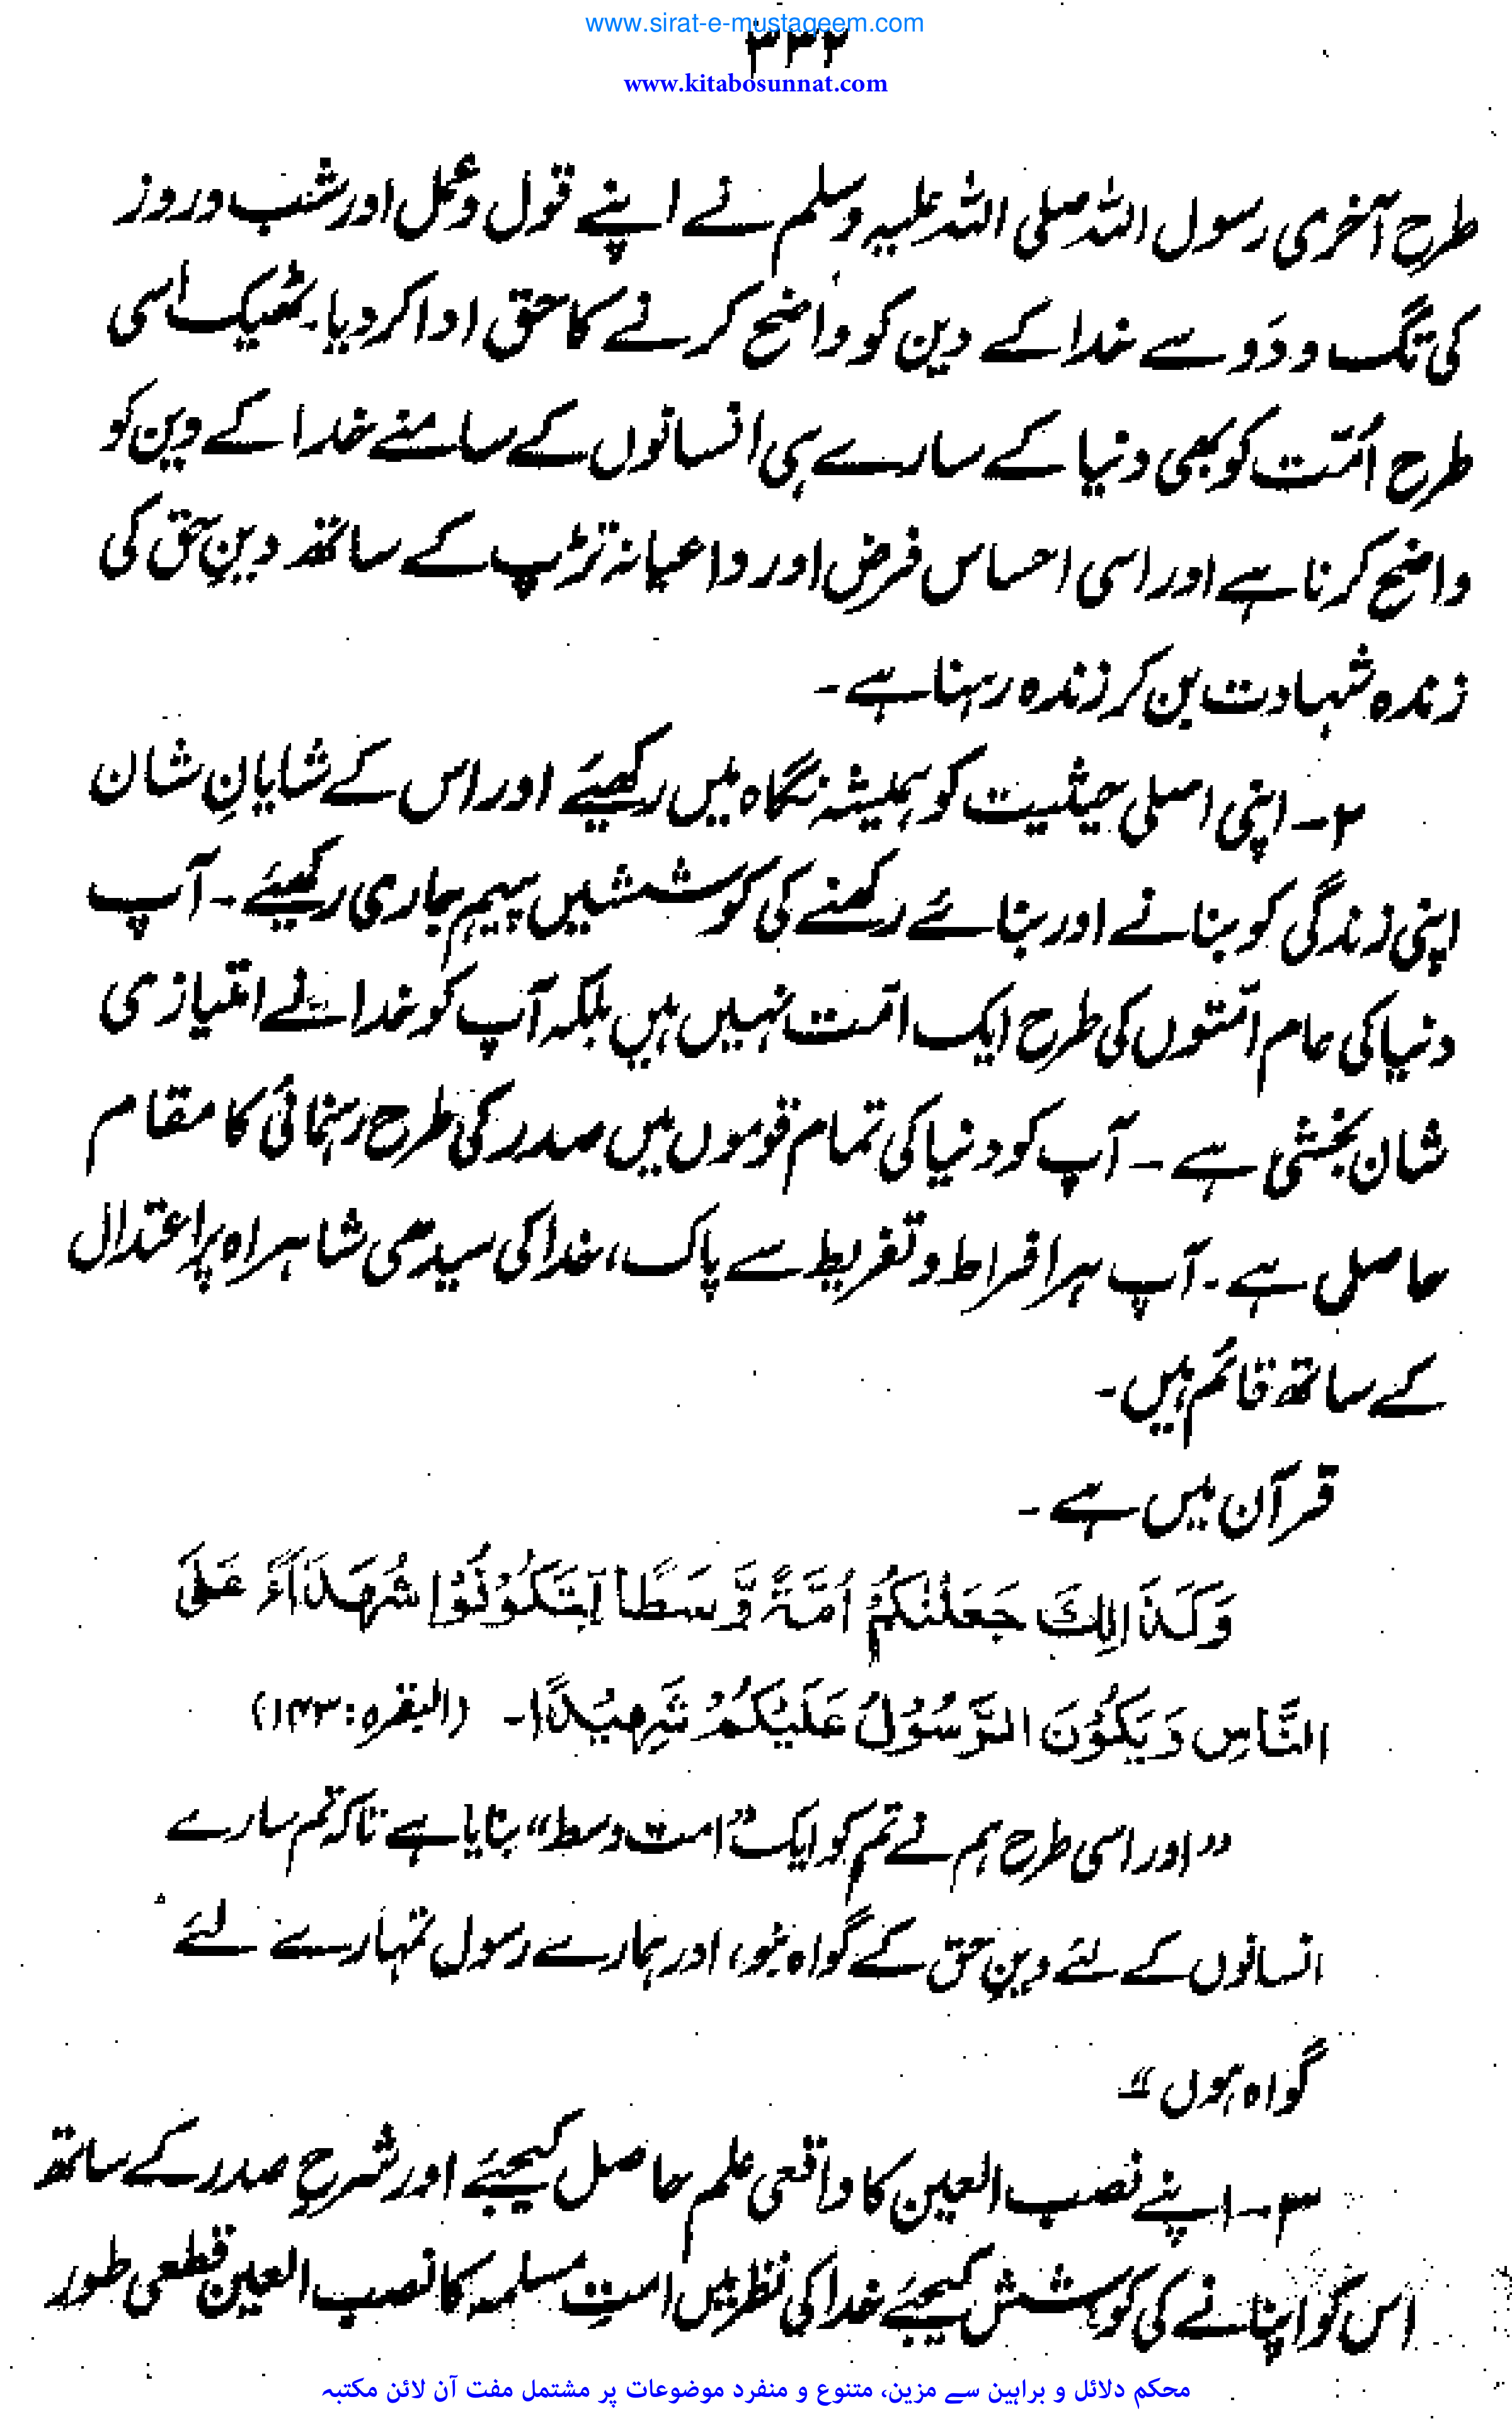 www.sirat-e-mustaqeem.com
۳۳۲
www.kitabosunnat.com
طرح آخری رسول اللہ صلی اللہ علیہ وسلم نے اپنے قول و عمل اور شب و روز
کی تگ و دَو سے خدا کے دین کو واضح کرنے کا حق ادا کر دیا۔ ٹھیک اسی
طرح اُمّت کو بھی دنیا کے سارے ہی انسانوں کے سامنے خدا کے دین کو
واضح کرنا ہے اور اسی احساس فرض اور داعیانہ تڑپ کے ساتھ دینِ حق کی
زندہ شہادت بن کر زندہ رہنا ہے۔
۲۔ اپنی اصلی حیثیت کو ہمیشہ نگاہ میں رکھیئے اور اس کے شایانِ شان
اپنی زندگی کو بنانے اور بنائے رکھنے کی کوششیں پیہم جاری رکھیئے۔ آپ
دنیا کی عام امّتوں کی طرح ایک امّت نہیں ہیں بلکہ آپ کو خدا نے امتیازی
شان بخشی ہے۔ آپ کو دنیا کی تمام قوموں میں صدر کی طرح رہنمائی کا مقام
حاصل ہے۔ آپ ہر افراط و تفریط سے پاک، خدا کی سیدھی شاہراہ پر اعتدال
کے ساتھ قائم ہیں۔
قرآن میں ہے۔
وَكَذَالِكَ جَعَلْنٰكُمْ اُمَّةً وَّسَطًا لِّتَكُوْنُوْا شُهَدَآءَ عَلَى
النَّاسِ وَيَكُوْنَ الرَّسُوْلُ عَلَيْكُمْ شَهِيْدًا۔ (البقرہ: ۱۴۳)
”اور اسی طرح ہم نے تم کو ایک ”امت وسط“ بنایا ہے تاکہ تم سارے
انسانوں کے لئے دینِ حق کے گواہ بنو، اور ہمارے رسول تمہارے لئے
گواہ ہوں“
۳۔ اپنے نصب العین کا واقعی علم حاصل کیجیئے اور شرحِ صدر کے ساتھ
اس کو اپنانے کی کوشش کیجیئے خدا کی نظر میں امتِ مسلمہ کا نصب العین قطعی طور
محکم دلائل و براہین سے مزین، متنوع و منفرد موضوعات پر مشتمل مفت آن لائن مکتبہ